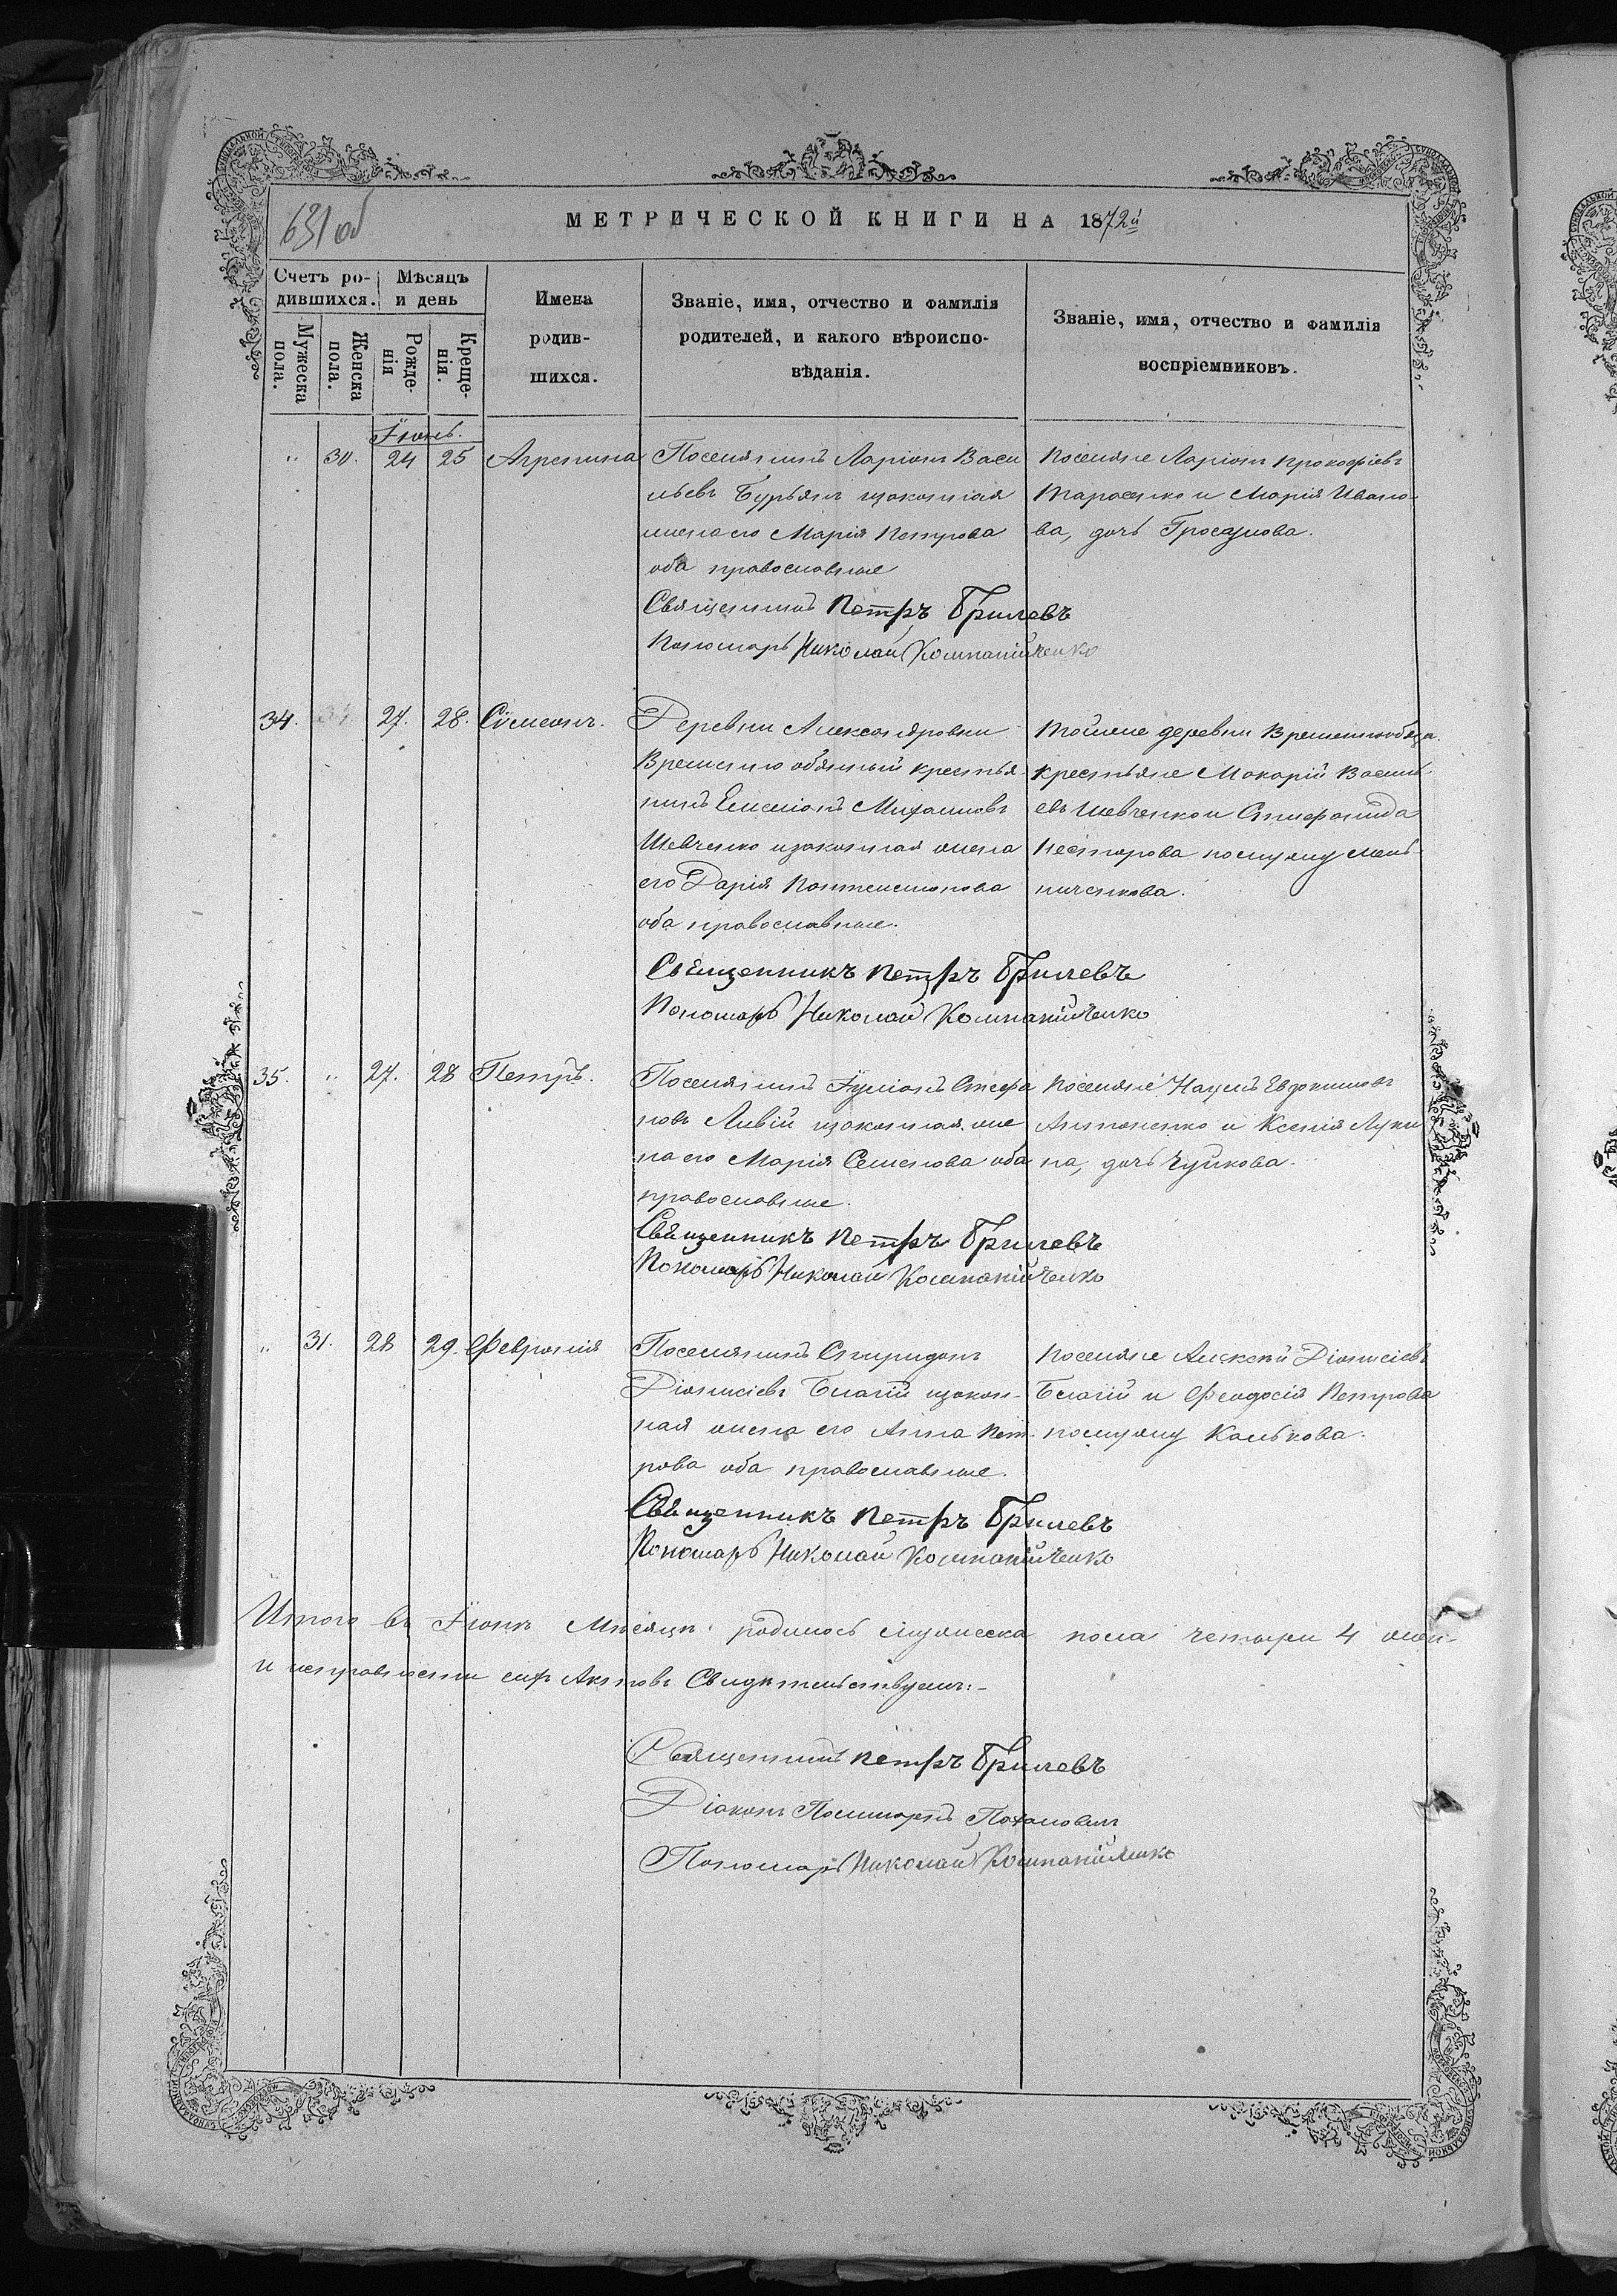 631 об
МЕТРИЧЕСКОЙ КНИГИ НА 1872й
Счетъ ро-
дившихся.
Мѣсяцъ
и день
Мужеска
пола.
Женска
пола.
Рожде-
нія
Креще-
нія.
Имена
родив-
шихся.
Званіе, имя, отчество и фамилія
родителей, и какого вѣроиспо-
вѣданія.
Званіе, имя, отчество и фамилія
воспріемниковъ.
Іюнь.
" 30. 24 25 Агрепина
Поселянинъ Ларіонъ Васи
льевъ Бурьянъ изаконная
жена его Марія Петрова
оба православные
Священникъ Петръ Брилевъ
Пономарь Николай Компанійченко
Поселяне Ларіонъ Прокофіевъ
Тарасенко и Марія Ивано-
ва, дочь
34. 27. 28. Сѵмеонъ.
Деревни Александровки
Временно обязнный крестья
нинъ Емеліанъ Михаиловъ
Шевченко изаконная жена
его Дарія Пантелимонова
оба православные.
Священникъ Петръ Брилевъ
Пономарь Николай Компанійченко
Тойже деревни Временнообяза.
крестьяне Макарій Василь
евъ Шевченко и Стефанида
Несторова помужу Мель-
ниченкова.
35. " 27. 28 Петръ.
Поселянинъ Іуліанъ Стефа
новъ Ливій изаконная же
на его Марія Семенова оба
православные.
Священникъ Петръ Брилевъ
Пономарь Николай Компанійченко
Поселяне Наумъ Евдокимовъ
Антоненко и Ксенія Луки
на, дочь Чуйкова.
" 31. 28 29. Февронія
Поселянинъ Спиридонъ
Діонисіевъ Благій изакон-
ная жена его Анна Пет-
рова оба православные.
Священникъ Петръ Брилевъ
Пономарь Николай Компанійченко
Поселяне Алексей Діонисіевъ
Благій и Феодосія Петрова
помужу Калькова.
Итого въ Іюнѣ Мѣсяцѣ родилось мужеска пола четыри 4
исправности сихъ Актовъ Свидѣтельствуемъ:-
Священникъ Петръ Брилевъ
Діаконъ
Пономарь Николай Компанійченко